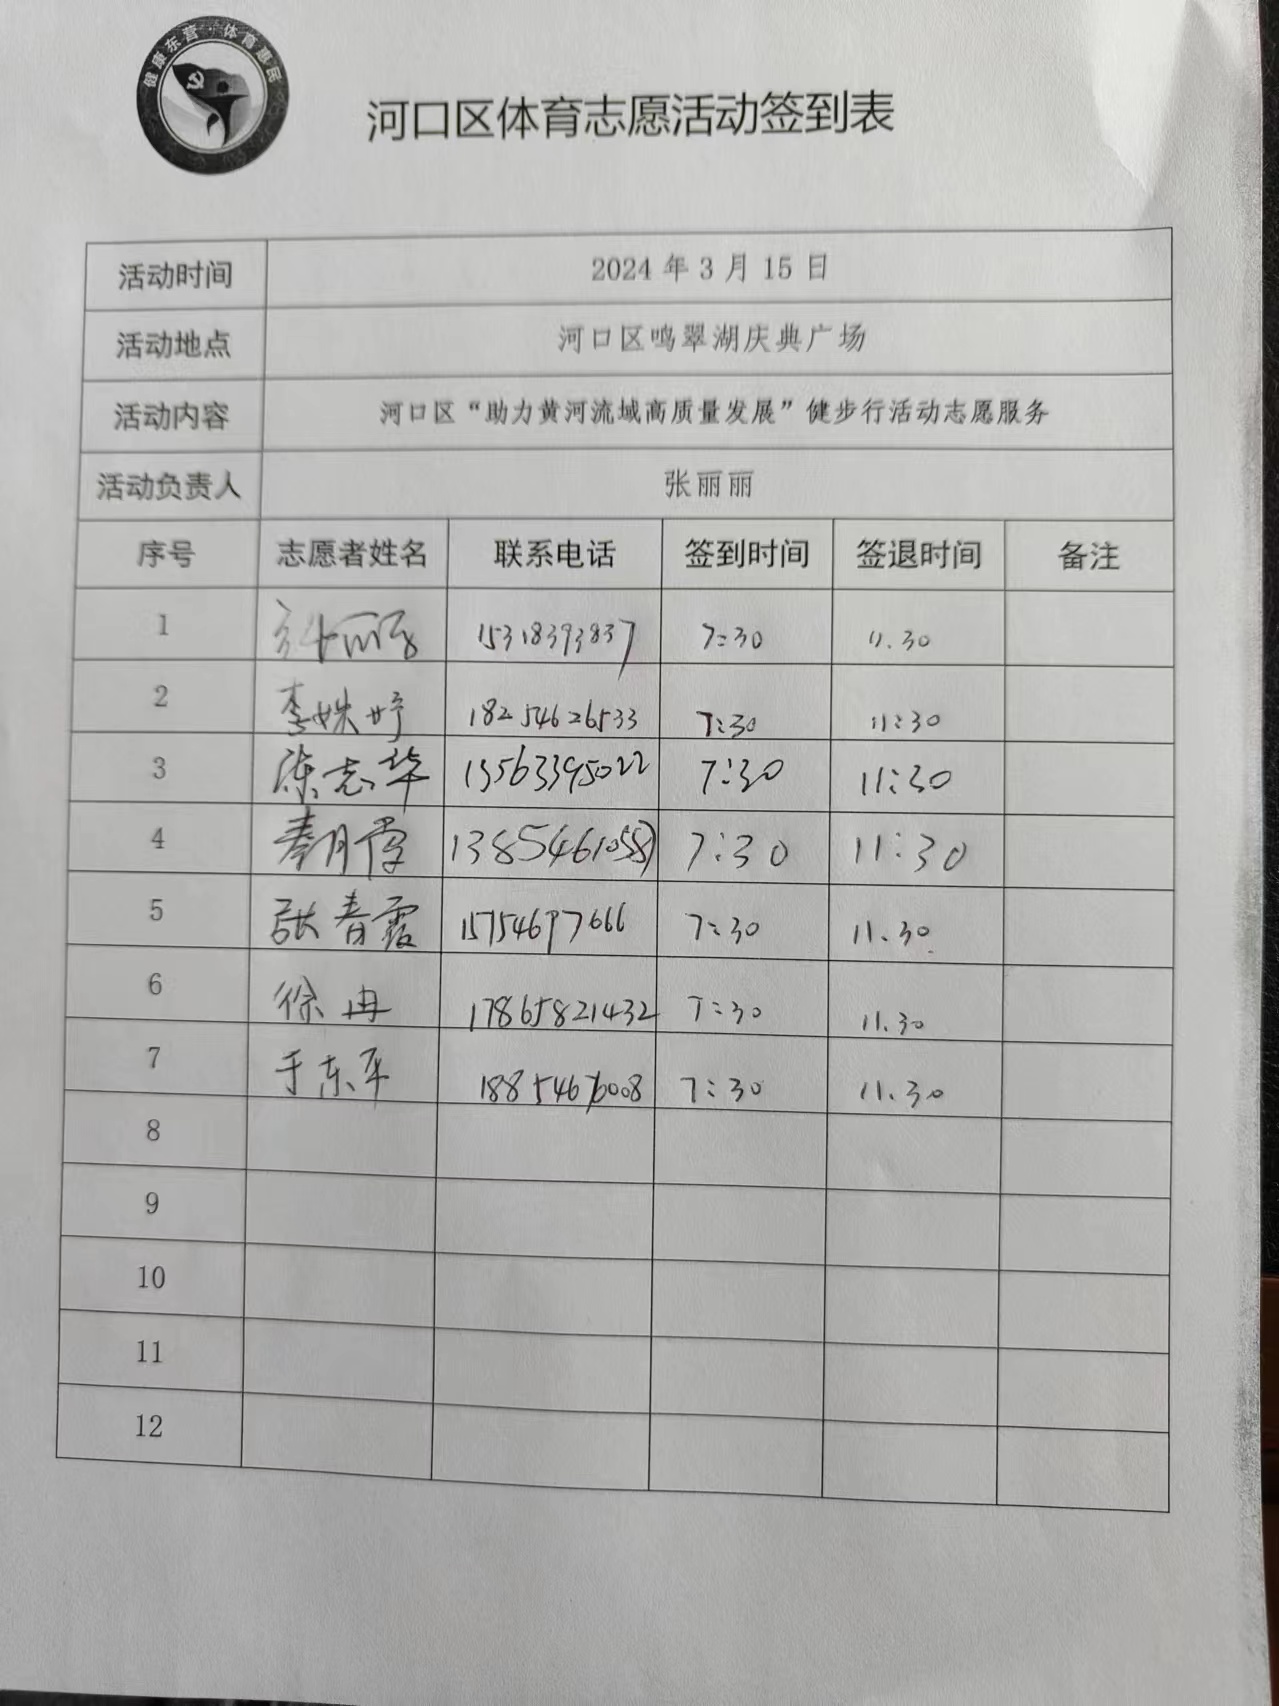 健康东营·体育惠民
河口区体育志愿活动签到表
活动时间 2024年3月15日
活动地点 河口区鸣翠湖庆典广场
活动内容 河口区“助力黄河流域高质量发展”健步行活动志愿服务
活动负责人 张丽丽
序号 志愿者姓名 联系电话 签到时间 签退时间 备注
1 15318393837 7:30 11.30
2 李姝妤 18254626533 7:30 11:30
3 陈志华 13563395022 7:30 11:30
4 秦月霞 7:30 11:30
5 张春霞 15754697666 7:30 11.30
6 徐冉 17865821432 7:30 11.30
7 于东平 7:30 11.30
8
9
10
11
12